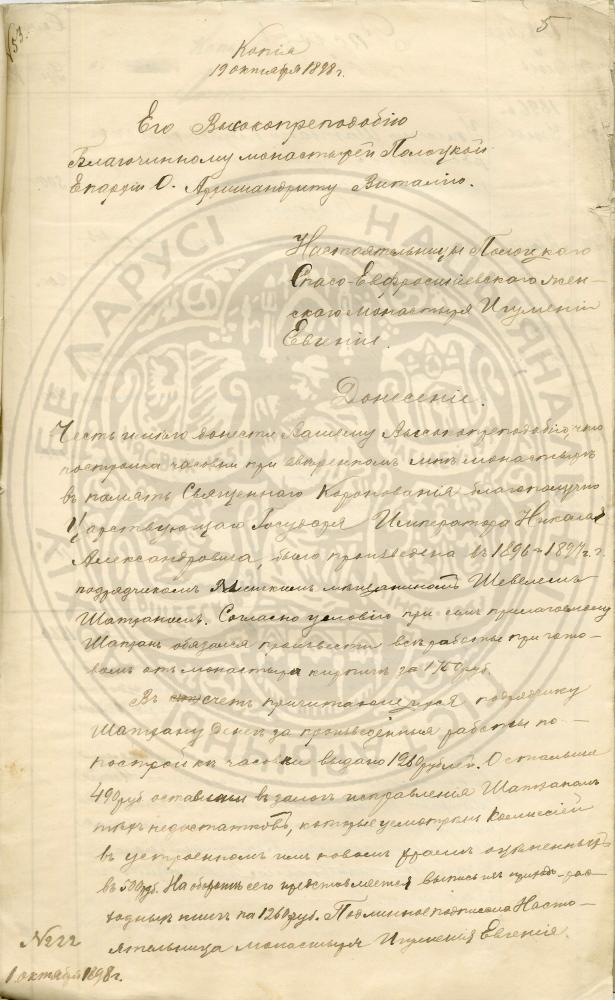 №53.
5
Копія
19 октября 1898 г.
Его Высокопреподобію
Благочинному монастырей Полоцкой
Епархіи О. Архимандриту Виталію.
Настоятельницы Полоцкаго
Спасо-Евфросиніевскаго жен-
скаго монастыря Игуменіи
Евгеніи.
Донесеніе.
Честь имѣю донести Вашему Высокопреподобію, что
постройка часовни при ввѣренномъ мнѣ монастырѣ
въ память Священнаго Коронованія благополучно
Царствующаго Государя Императора Николая
Александровича, было произведена въ 1896 и 1897 г.г.
подрядчикомъ мѣщаниномъ Шевелемъ
Шапраномъ. Согласно условію при семъ прилагаемому
Шапранъ обязался произвести всѣ работы при гото-
вомъ отъ монастыря кирпичѣ за 1750 руб.
Въ счетъ причитающихся подрядчику
Шапрану денегъ за произведенныя работы по
постройкѣ часовни выдано 1260 рублей. Остальные
490 руб оставлены въ залогъ исправленія Шапраномъ
тѣхъ недостатковъ, которые усмотрены Коммиссіей
въ устроенномъ имъ новомъ храмѣ оцѣненныхъ
въ 500 руб. На оборотѣ сего представляется выпись изъ приходо-рас-
ходныхъ книгъ на 1260 руб. Подлинное подписала Насто-
ятельница монастыря Игуменія Евгенія.
№222
1 октября 1898 г.